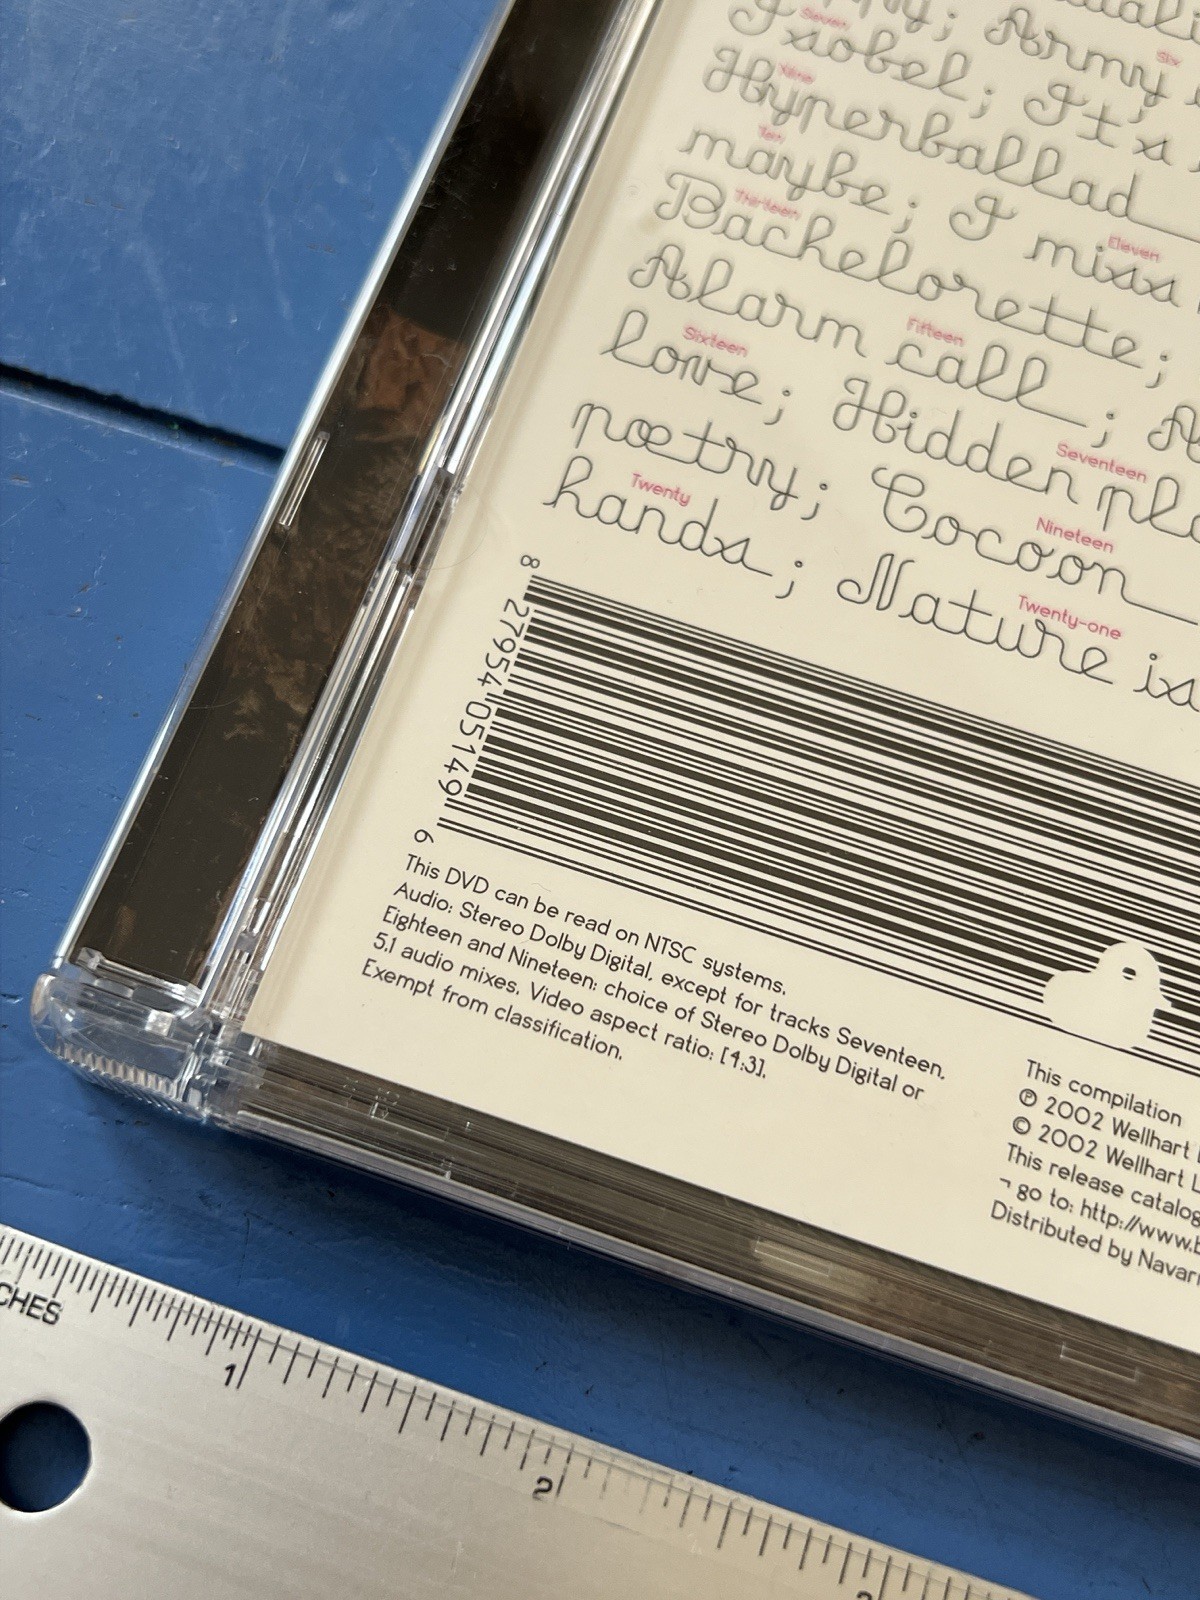 Army
Six
Seven
Isobel; It's
Nine
Hyperballad
Ten
maybe; I miss
Eleven
Thirteen
Bachelorette;
Fifteen
Alarm call;
Sixteen
love; Hidden
Seventeen
poetry; Cocoon
Nineteen
Twenty
hands; Nature is
Twenty-one
8 27954 05149 6
This DVD can be read on NTSC systems.
Audio: Stereo Dolby Digital, except for tracks Seventeen,
Eighteen and Nineteen: choice of Stereo Dolby Digital or
5.1 audio mixes. Video aspect ratio: [4:3].
Exempt from classification.
This compilation
℗ 2002 Wellhart
© 2002 Wellhart
This release
¬ go to: http://www.
Distributed by
1
2